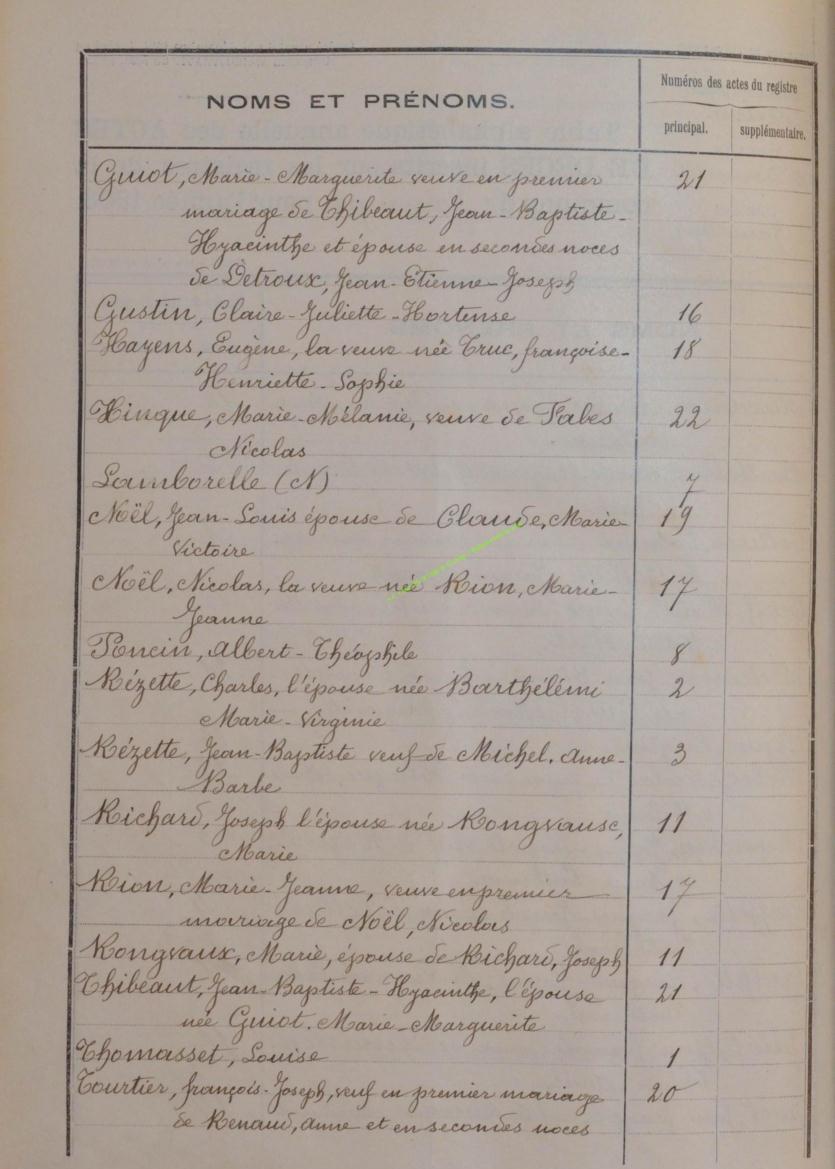 Numéros des actes du registre
NOMS ET PRÉNOMS.
principal. supplémentaire.
Guiot, Marie-Marguerite veuve en premier 21
mariage de Thibeaut, Jean-Baptiste-
Hyacinthe et épouse en secondes noces
de Detroux, Jean-Etienne-Joseph
Gustin, Claire-Juliette-Hortense 16
Hayens, Eugène, la veuve née Truc, françoise- 18
Henriette-Sophie
Hinque, Marie-Mélanie, veuve de Fabes 22
Nicolas
Lamborelle (N) 7
Noël, Jean-Louis épouse de Claude, Marie- 19
Victoire
Noël, Nicolas, la veuve née Rion, Marie- 17
Jeanne
Poncin, Albert-Théophile 8
Rézette, Charles, l'épouse née Barthélémi 2
Marie-Virginie
Rézette, Jean-Baptiste veuf de Michel. Anne- 3
Barbe
Richard, Joseph l'épouse née Rongvause, 11
Marie
Rion, Marie-Jeanne, veuve en premier 17
mariage de Noël, Nicolas
Rongvaux, Marie, épouse de Richard, Joseph 11
Thibeaut, Jean-Baptiste-Hyacinthe, l'épouse 21
née Guiot. Marie-Marguerite
Thomasset, Louise 1
Tourtier, françois-Joseph, veuf en premier mariage 20
de Renaud, Anne et en secondes noces